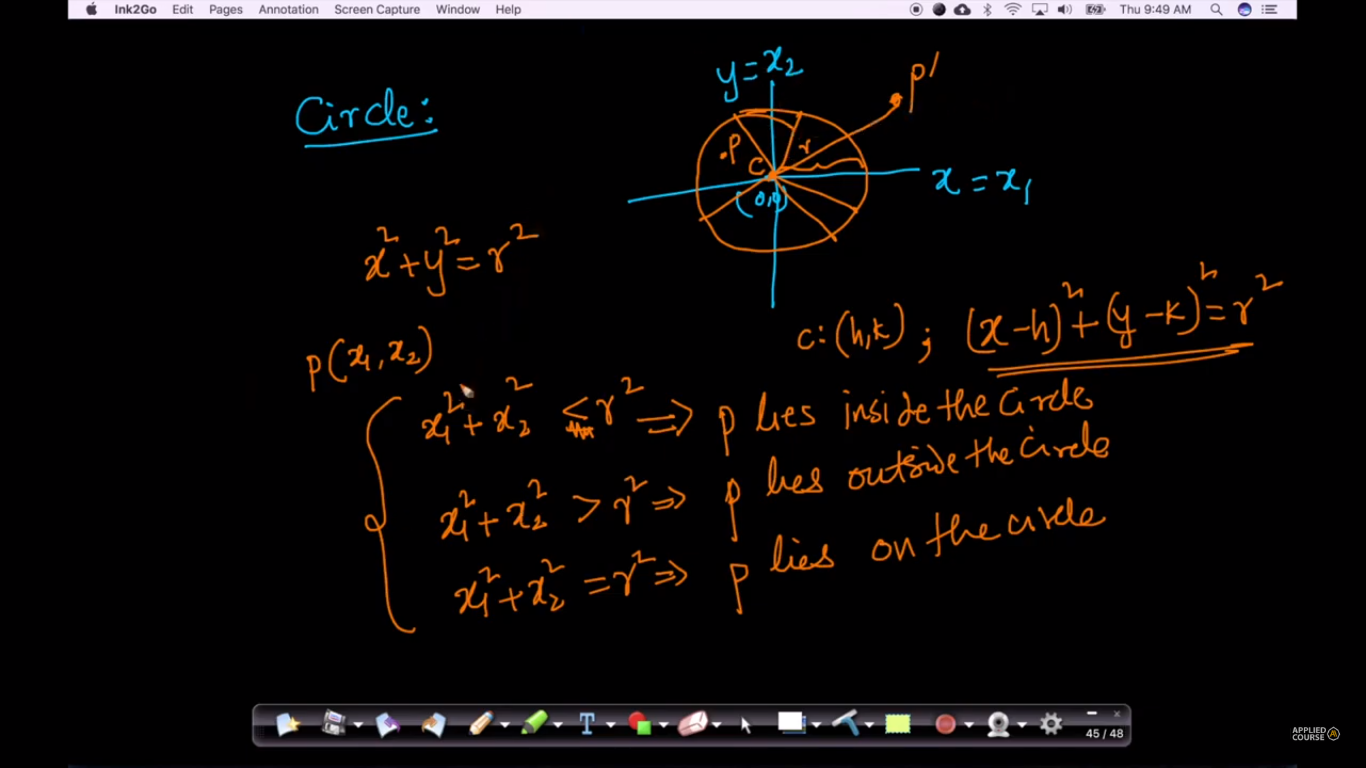 Ink2Go Edit Pages Annotation Screen Capture Window Help Thu 9:49 AM
Circle:
y = x₂
p'
.p
C
r
(0,0)
x = x₁
x² + y² = r²
c: (h,k) ; (x-h)² + (y-k)² = r²
p(x₁, x₂)
x₁² + x₂² < r² ⇒ p lies inside the circle
x₁² + x₂² > r² ⇒ p lies outside the circle
x₁² + x₂² = r² ⇒ p lies on the circle
T
45 / 48
APPLIED
COURSE